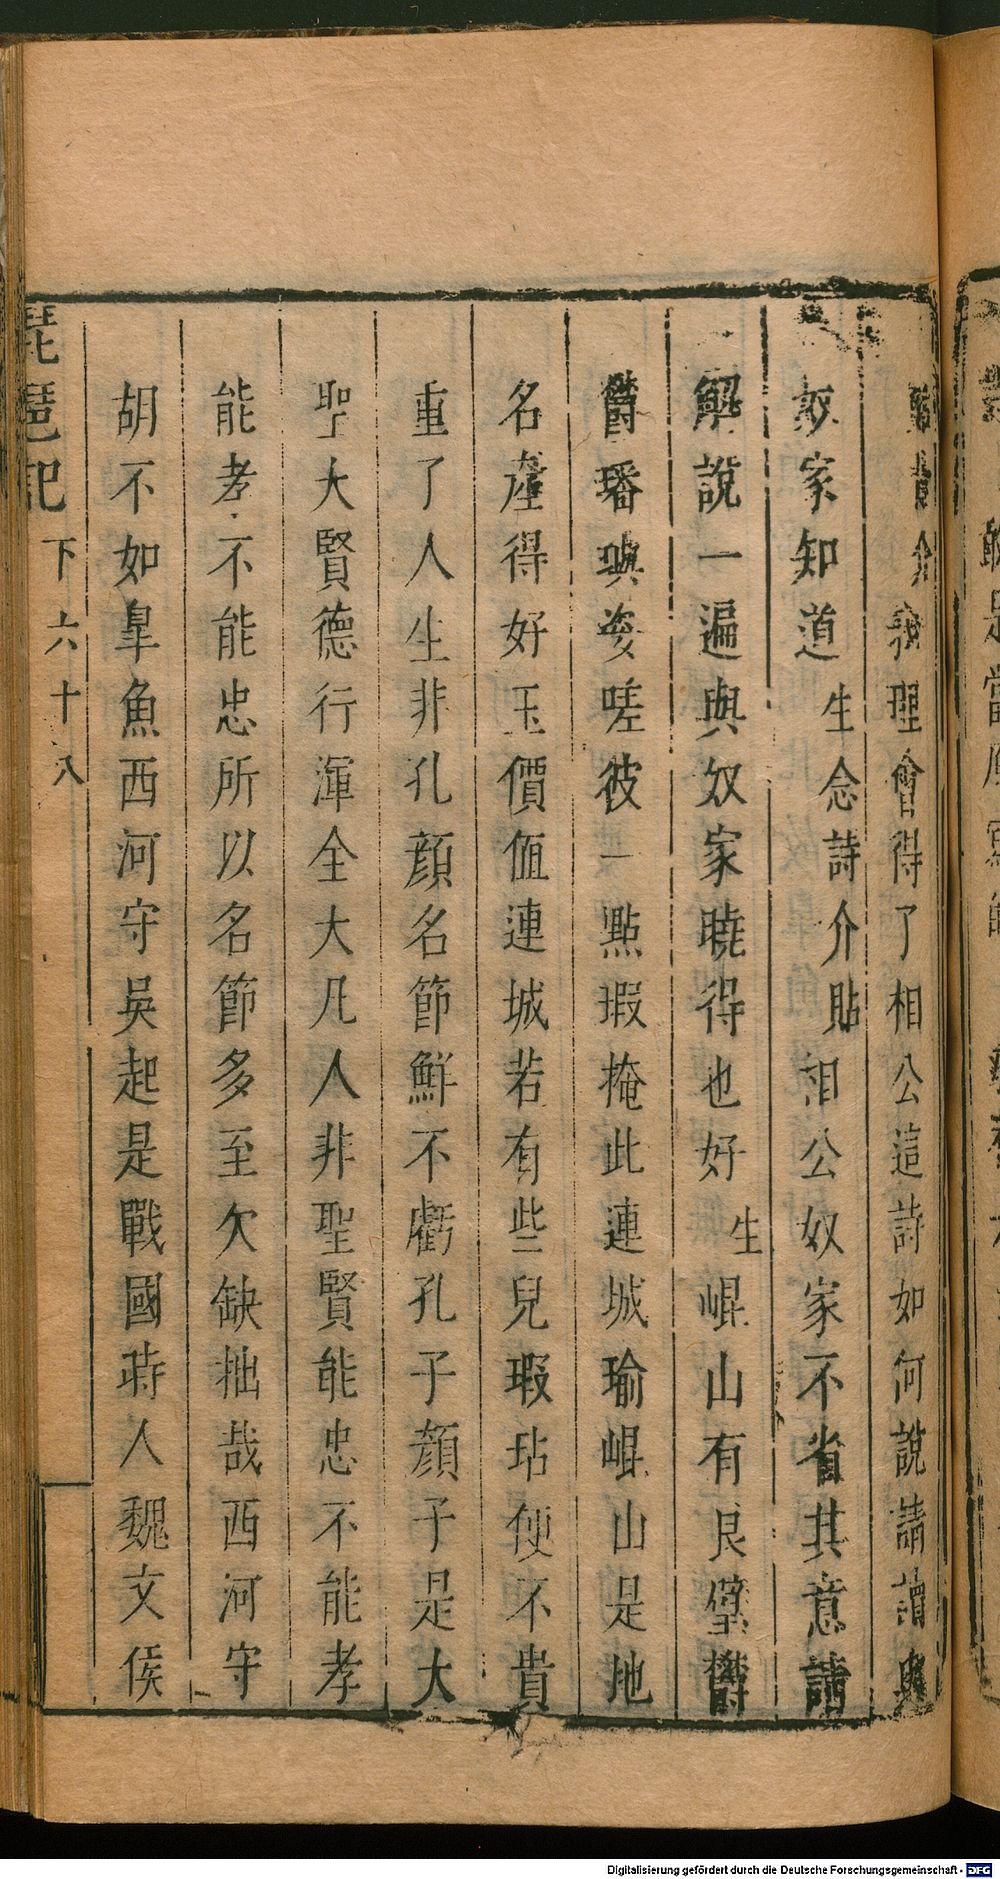 介我理會得了相公這詩如何說請讀與
奴家知道生念詩介貼相公奴家不省其意請
解說一遍與奴家曉得也好生崐山有良璧鬱
鬱璠璵姿嗟彼一點瑕掩此連城瑜崐山是地
名產得好玉價值連城若有些兒瑕玷便不貴
重了人生非孔顏名節鮮不虧孔子顏子是大
聖大賢德行渾全大凡人非聖賢能忠不能孝
能孝不能忠所以名節多至欠缺拙哉西河守
胡不如皐魚西河守吳起是戰國時人魏文侯
琵琶記
下六十八
Digitalisierung gefördert durch die Deutsche Forschungsgemeinschaft - DFG